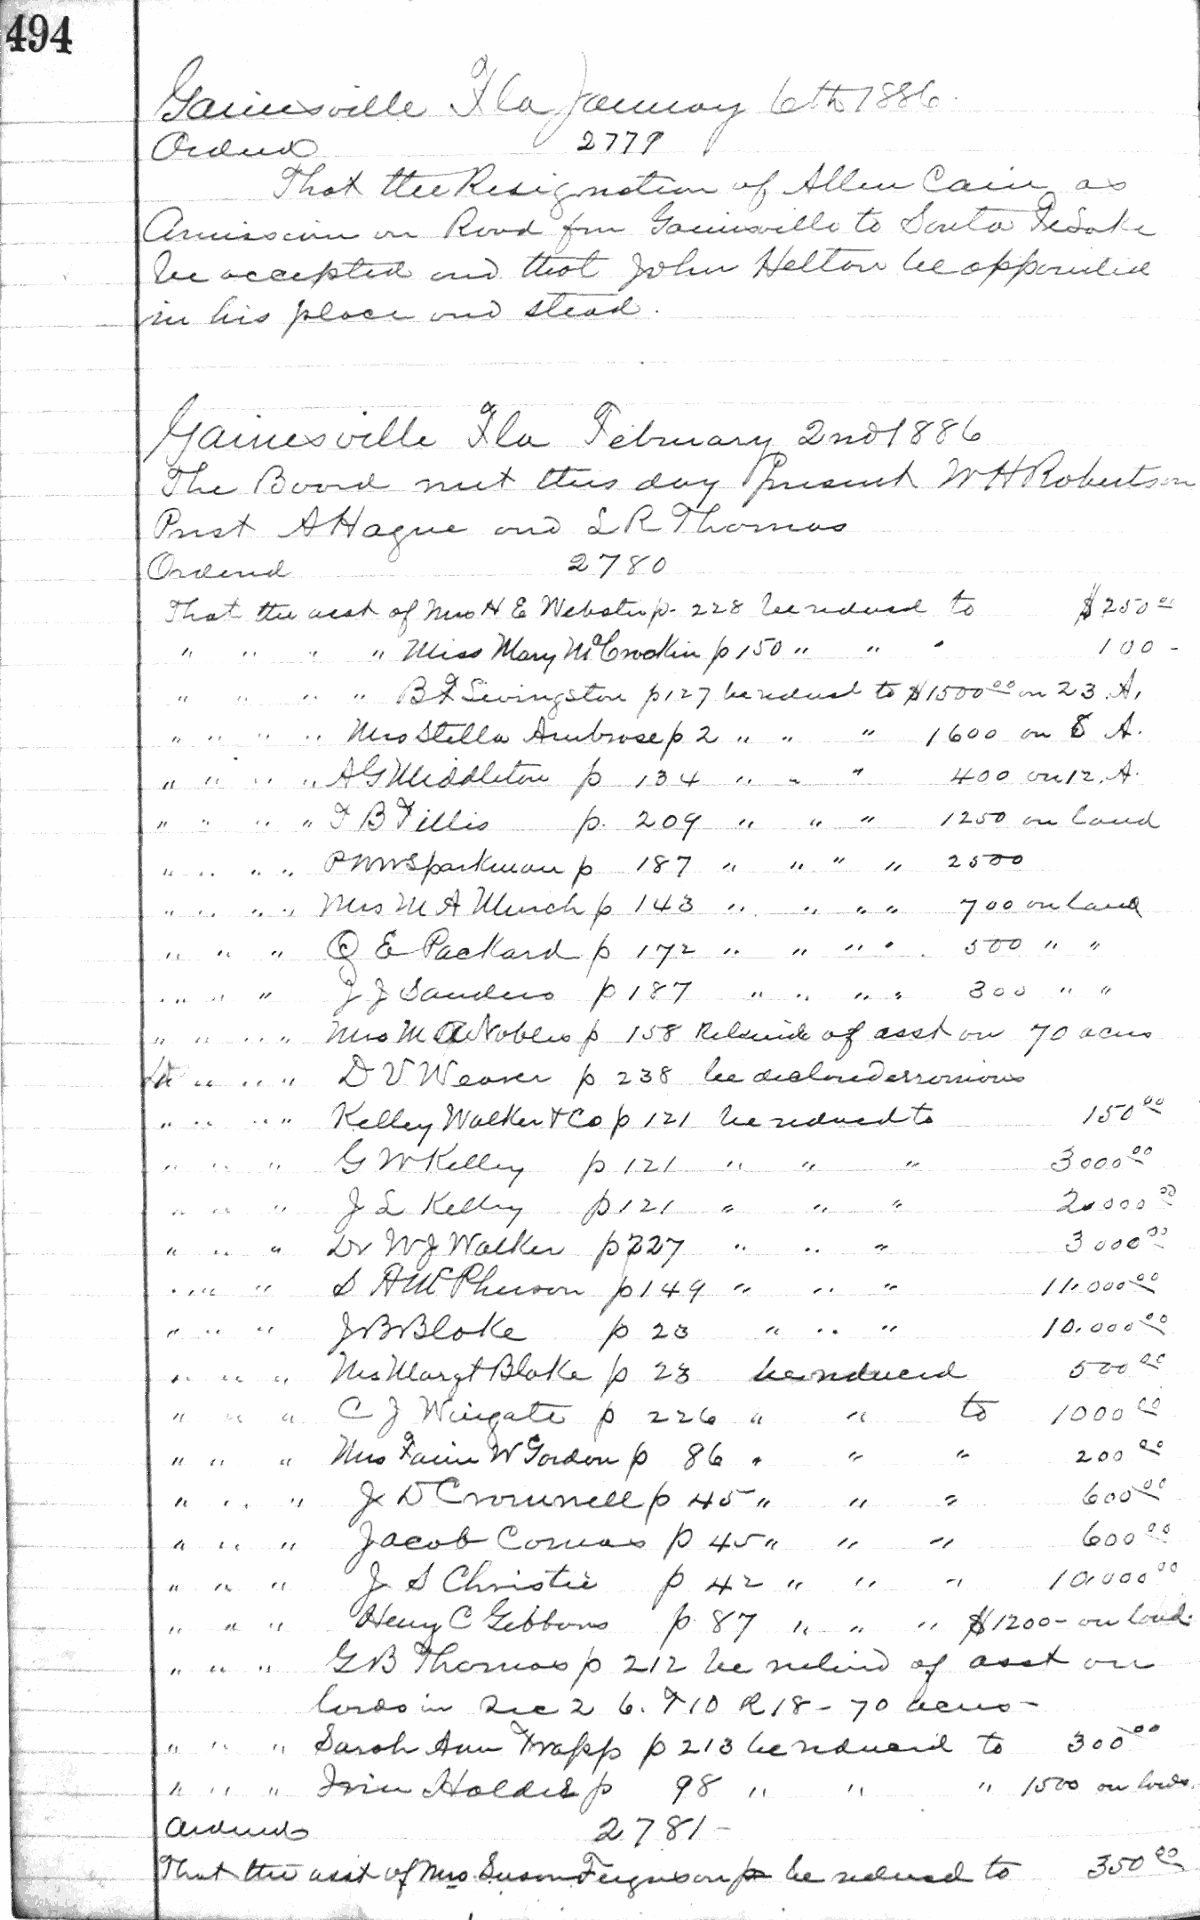 494
Gainesville Fla January 6th 1886.
Ordered 2779
That the Resignation of Allen Cain as
on Road from Gainesville to Santa Fe Lake
be accepted and that John Helton be appointed
in his place and stead.
Gainesville Fla February 2nd 1886
The Board met this day Present W H Robertson
Prest A Hague and L R Thomas
Ordered 2780
That the asst of Mrs H E Webster p. 228 be reduced to $250 00
" " " " Miss Mary McCrockin p 150 " " " 100 -
" " " " B F Livingston p 127 be reduced to $1500 00 on 23 A.
" " " " Mrs Stella Ambrose p 2 " " " 1600 on 8 A.
" " " " A G Middleton p 134 " " " 400 on 12. A.
" " " " F B Tillis p. 209 " " " 1250 on land
" " " " Sparkman p 187 " " " " 2500
" " " " Mrs M A Murch p 143 " " " " 700 on land
" " " Q E Packard p 172 " " " " 500 " "
" " " " J J Sanders p 187 " " " " 300 " "
" " " " Mrs M A Nobles p 158 of asst on 70 acres
" " " " D V Weaver p 238 be declared erronious
" " " " Kelley Walker & Co p 121 be reduced to 150 00
" " " G W Kelley p 121 " " " 3000 00
" " " J L Kelley p 121 " " " 20000 00
" " " Dr W J Walker p 227 " " " 3000 00
" " " " S A McPherson p 149 " " " 11.000 00
" " " J B Blake p 23 " " " 10.000 00
" " " Mrs Margt Blake p 23 be reduced 500 00
" " " C J Wingate p 226 " " to 1000 00
" " " Mrs Fanie W Gordon p 86 " " " 200 00
" " " J D Cromwell p 45 " " " 600 00
" " " Jacob Comas p 45 " " " 600 00
" " " J S Christie p 42 " " " 10.000 00
" " " Henry C Gibbons p 87 " " " $1200 - on land.
" " " G B Thomas p 212 be relievd of asst on
lands in Sec 2 6. T 10 R 18 - 70 acres -
" " " Sarah Ann Trapp p 213 be reduced to 300 00
" " " Holder p 98 " " " 1500 on lands.
Ordered 2781 -
That the asst of Mrs Susan Ferguson p be reduced to 350 00